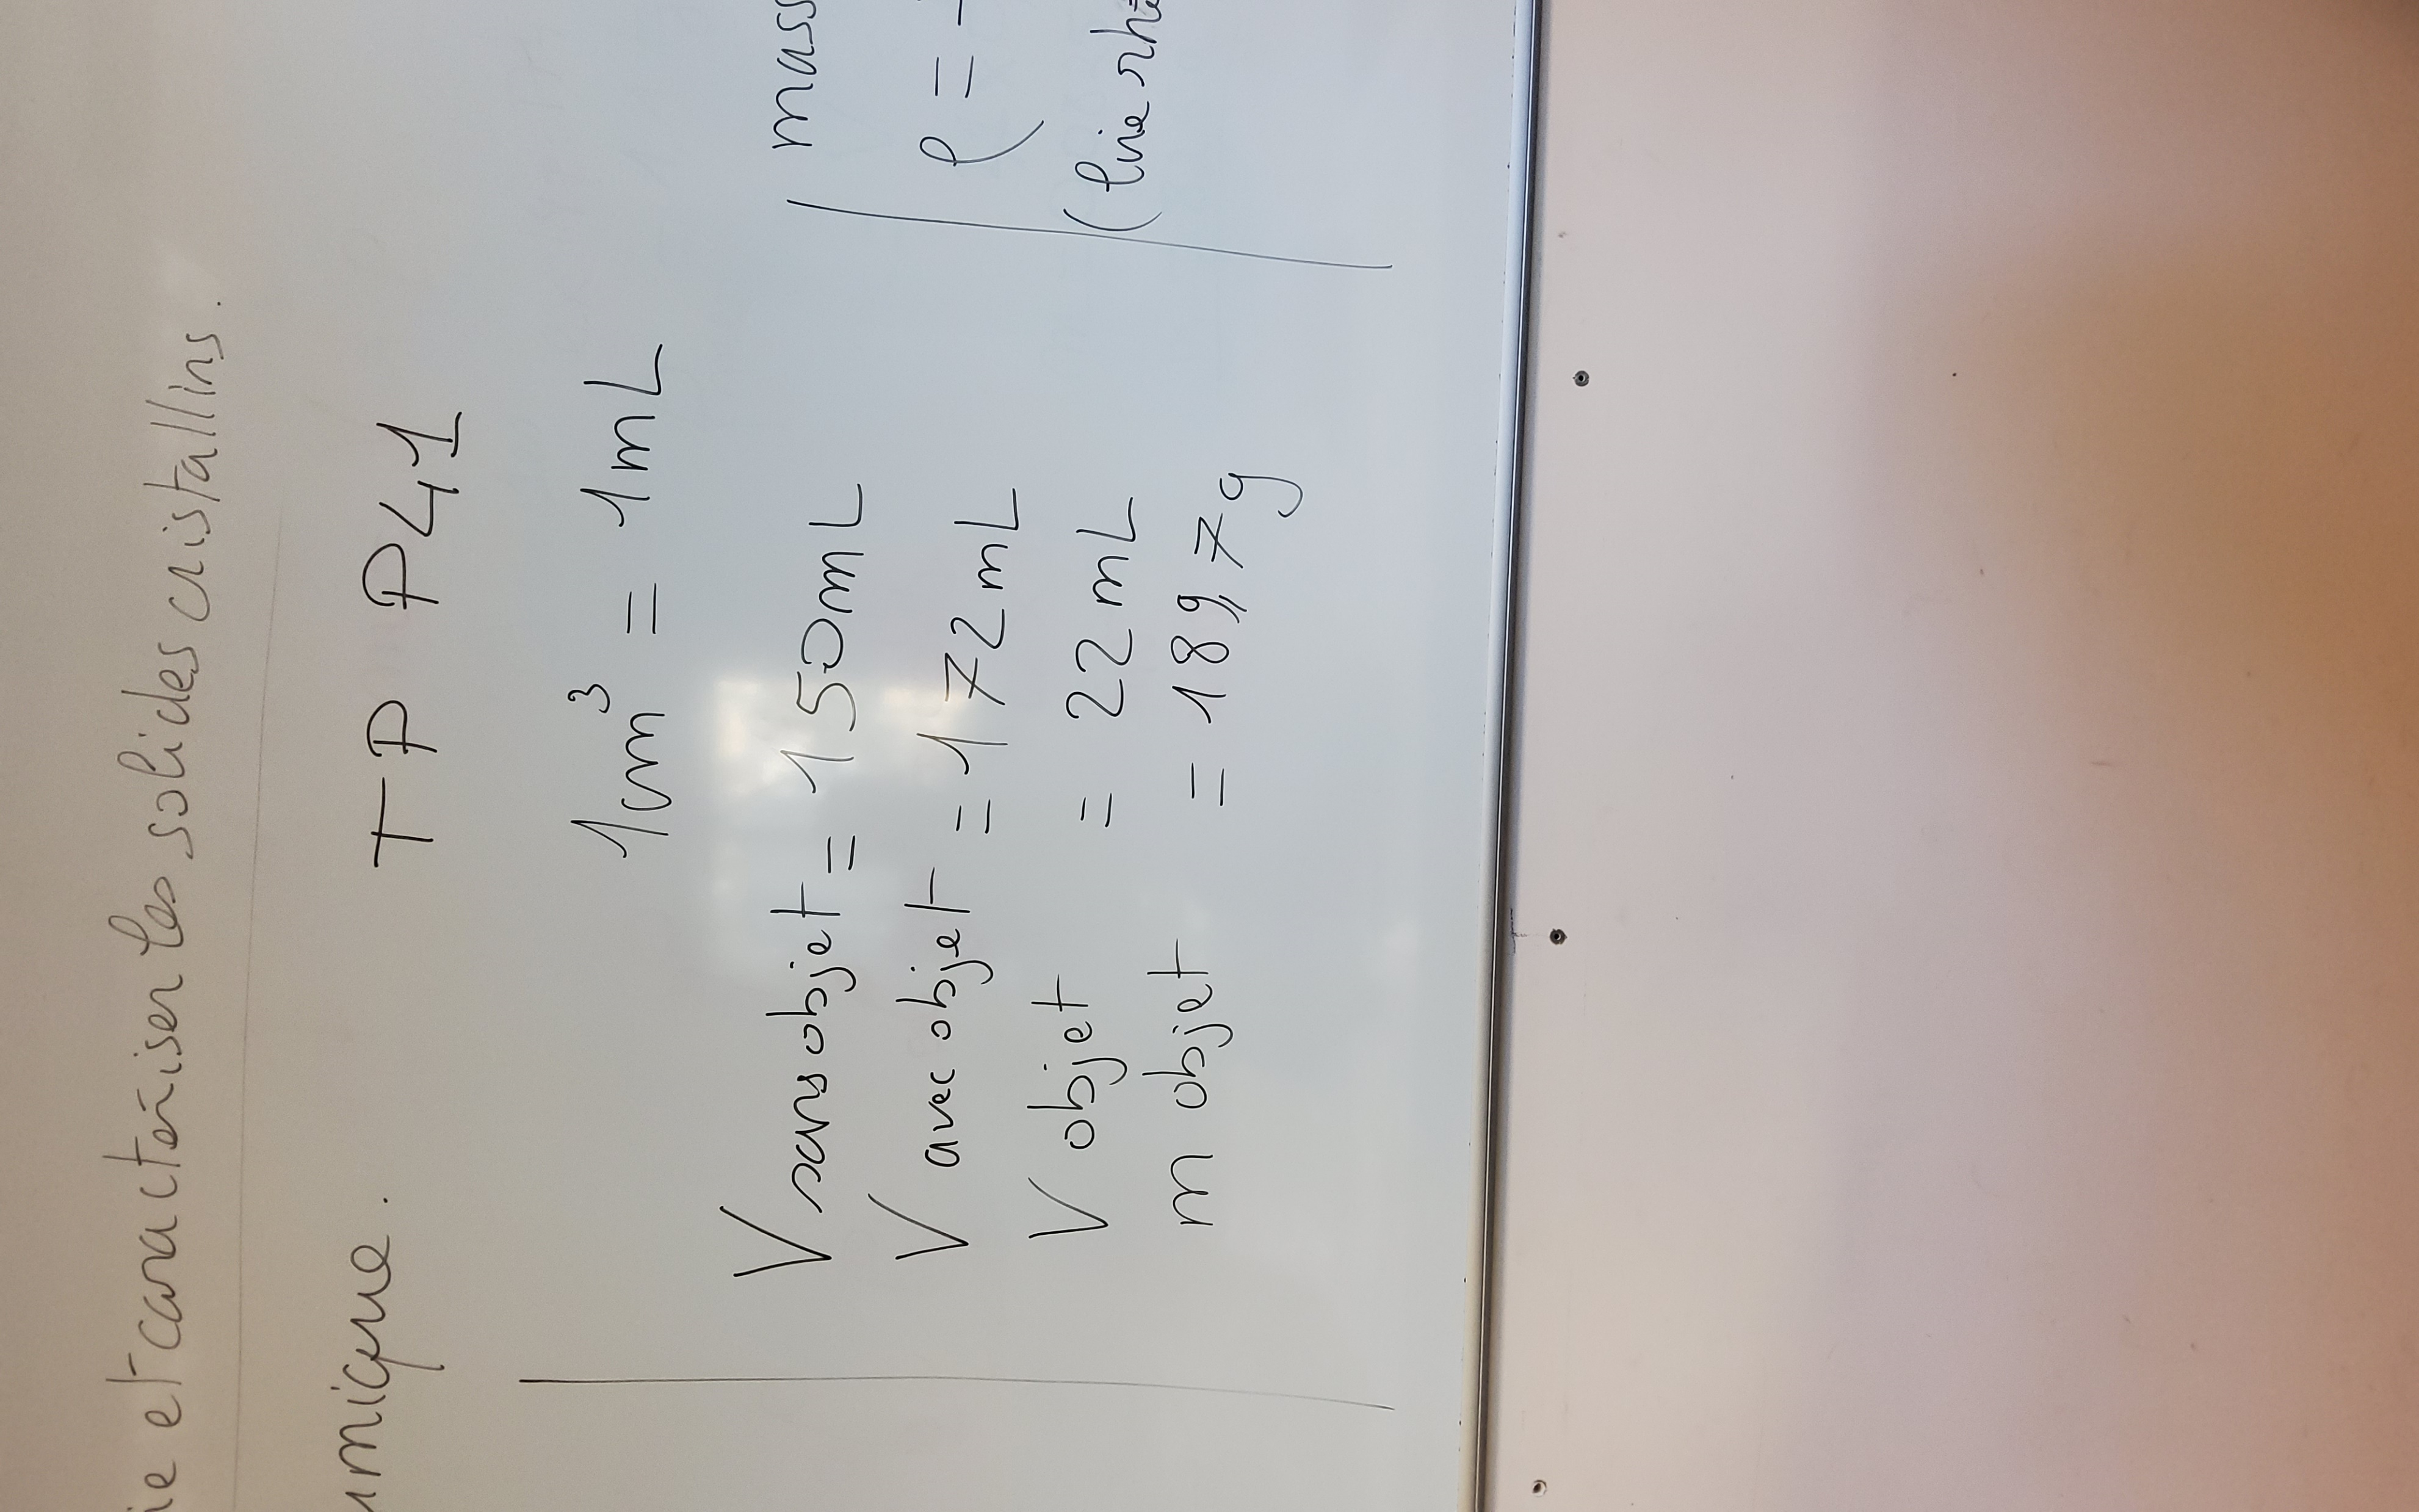 et caractériser les solides cristallins.
mique. TP P41
1cm³ = 1mL
V sans objet = 150mL
V avec objet = 172mL
V objet = 22mL
m objet = 189,7g
mass
ρ =
(lire rh